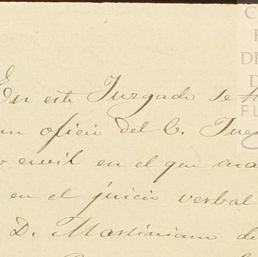 En este Juzgado se
un oficio del C. Jue
civil en el que ma
en el juicio verbal
D. Martiniano de